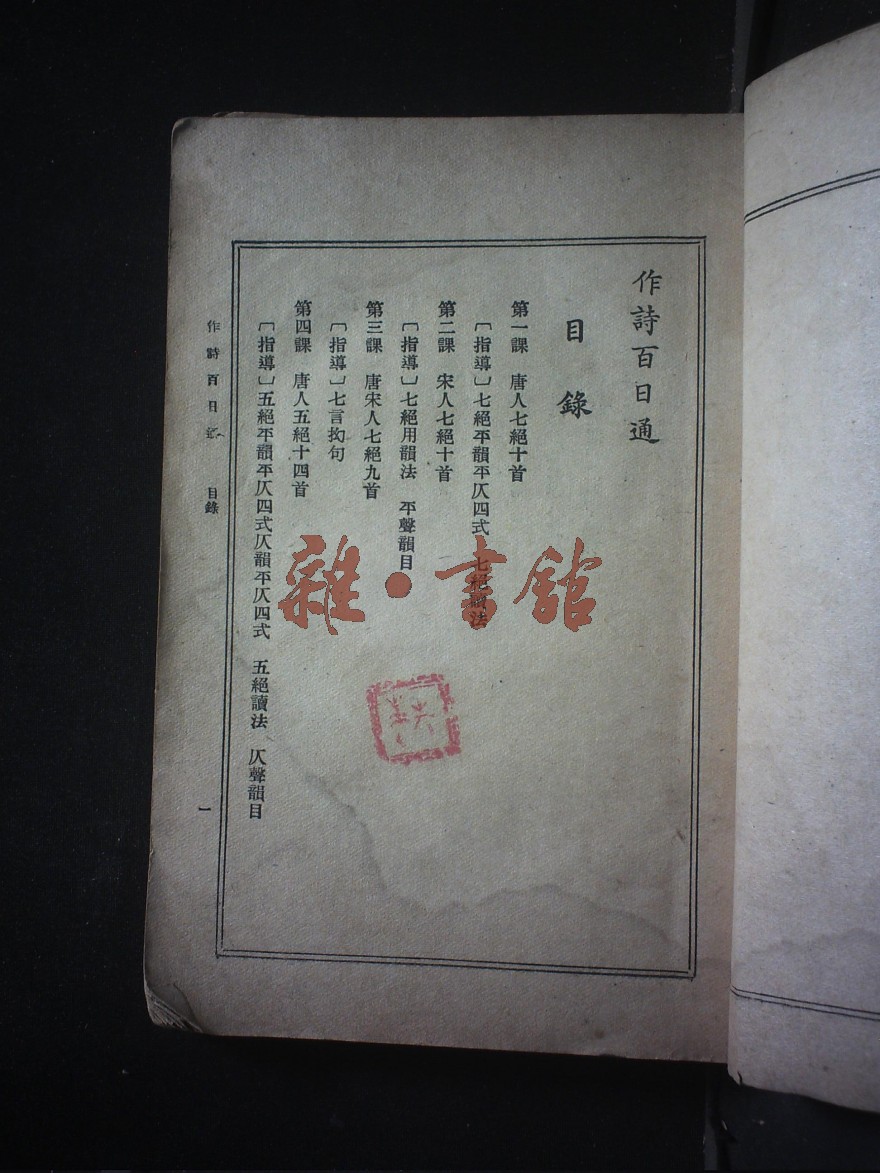 作詩百日通
目錄
第一課　唐人七絕十首
〔指導〕七絕平韻平仄四式　七絕讀法
第二課　宋人七絕十首
〔指導〕七絕用韻法　平聲韻目
第三課　唐宋人七絕九首
〔指導〕七言拗句
第四課　唐人五絕十四首
〔指導〕五絕平韻平仄四式仄韻平仄四式　五絕讀法　仄聲韻目
作詩百日通　目錄
一
雜·書館